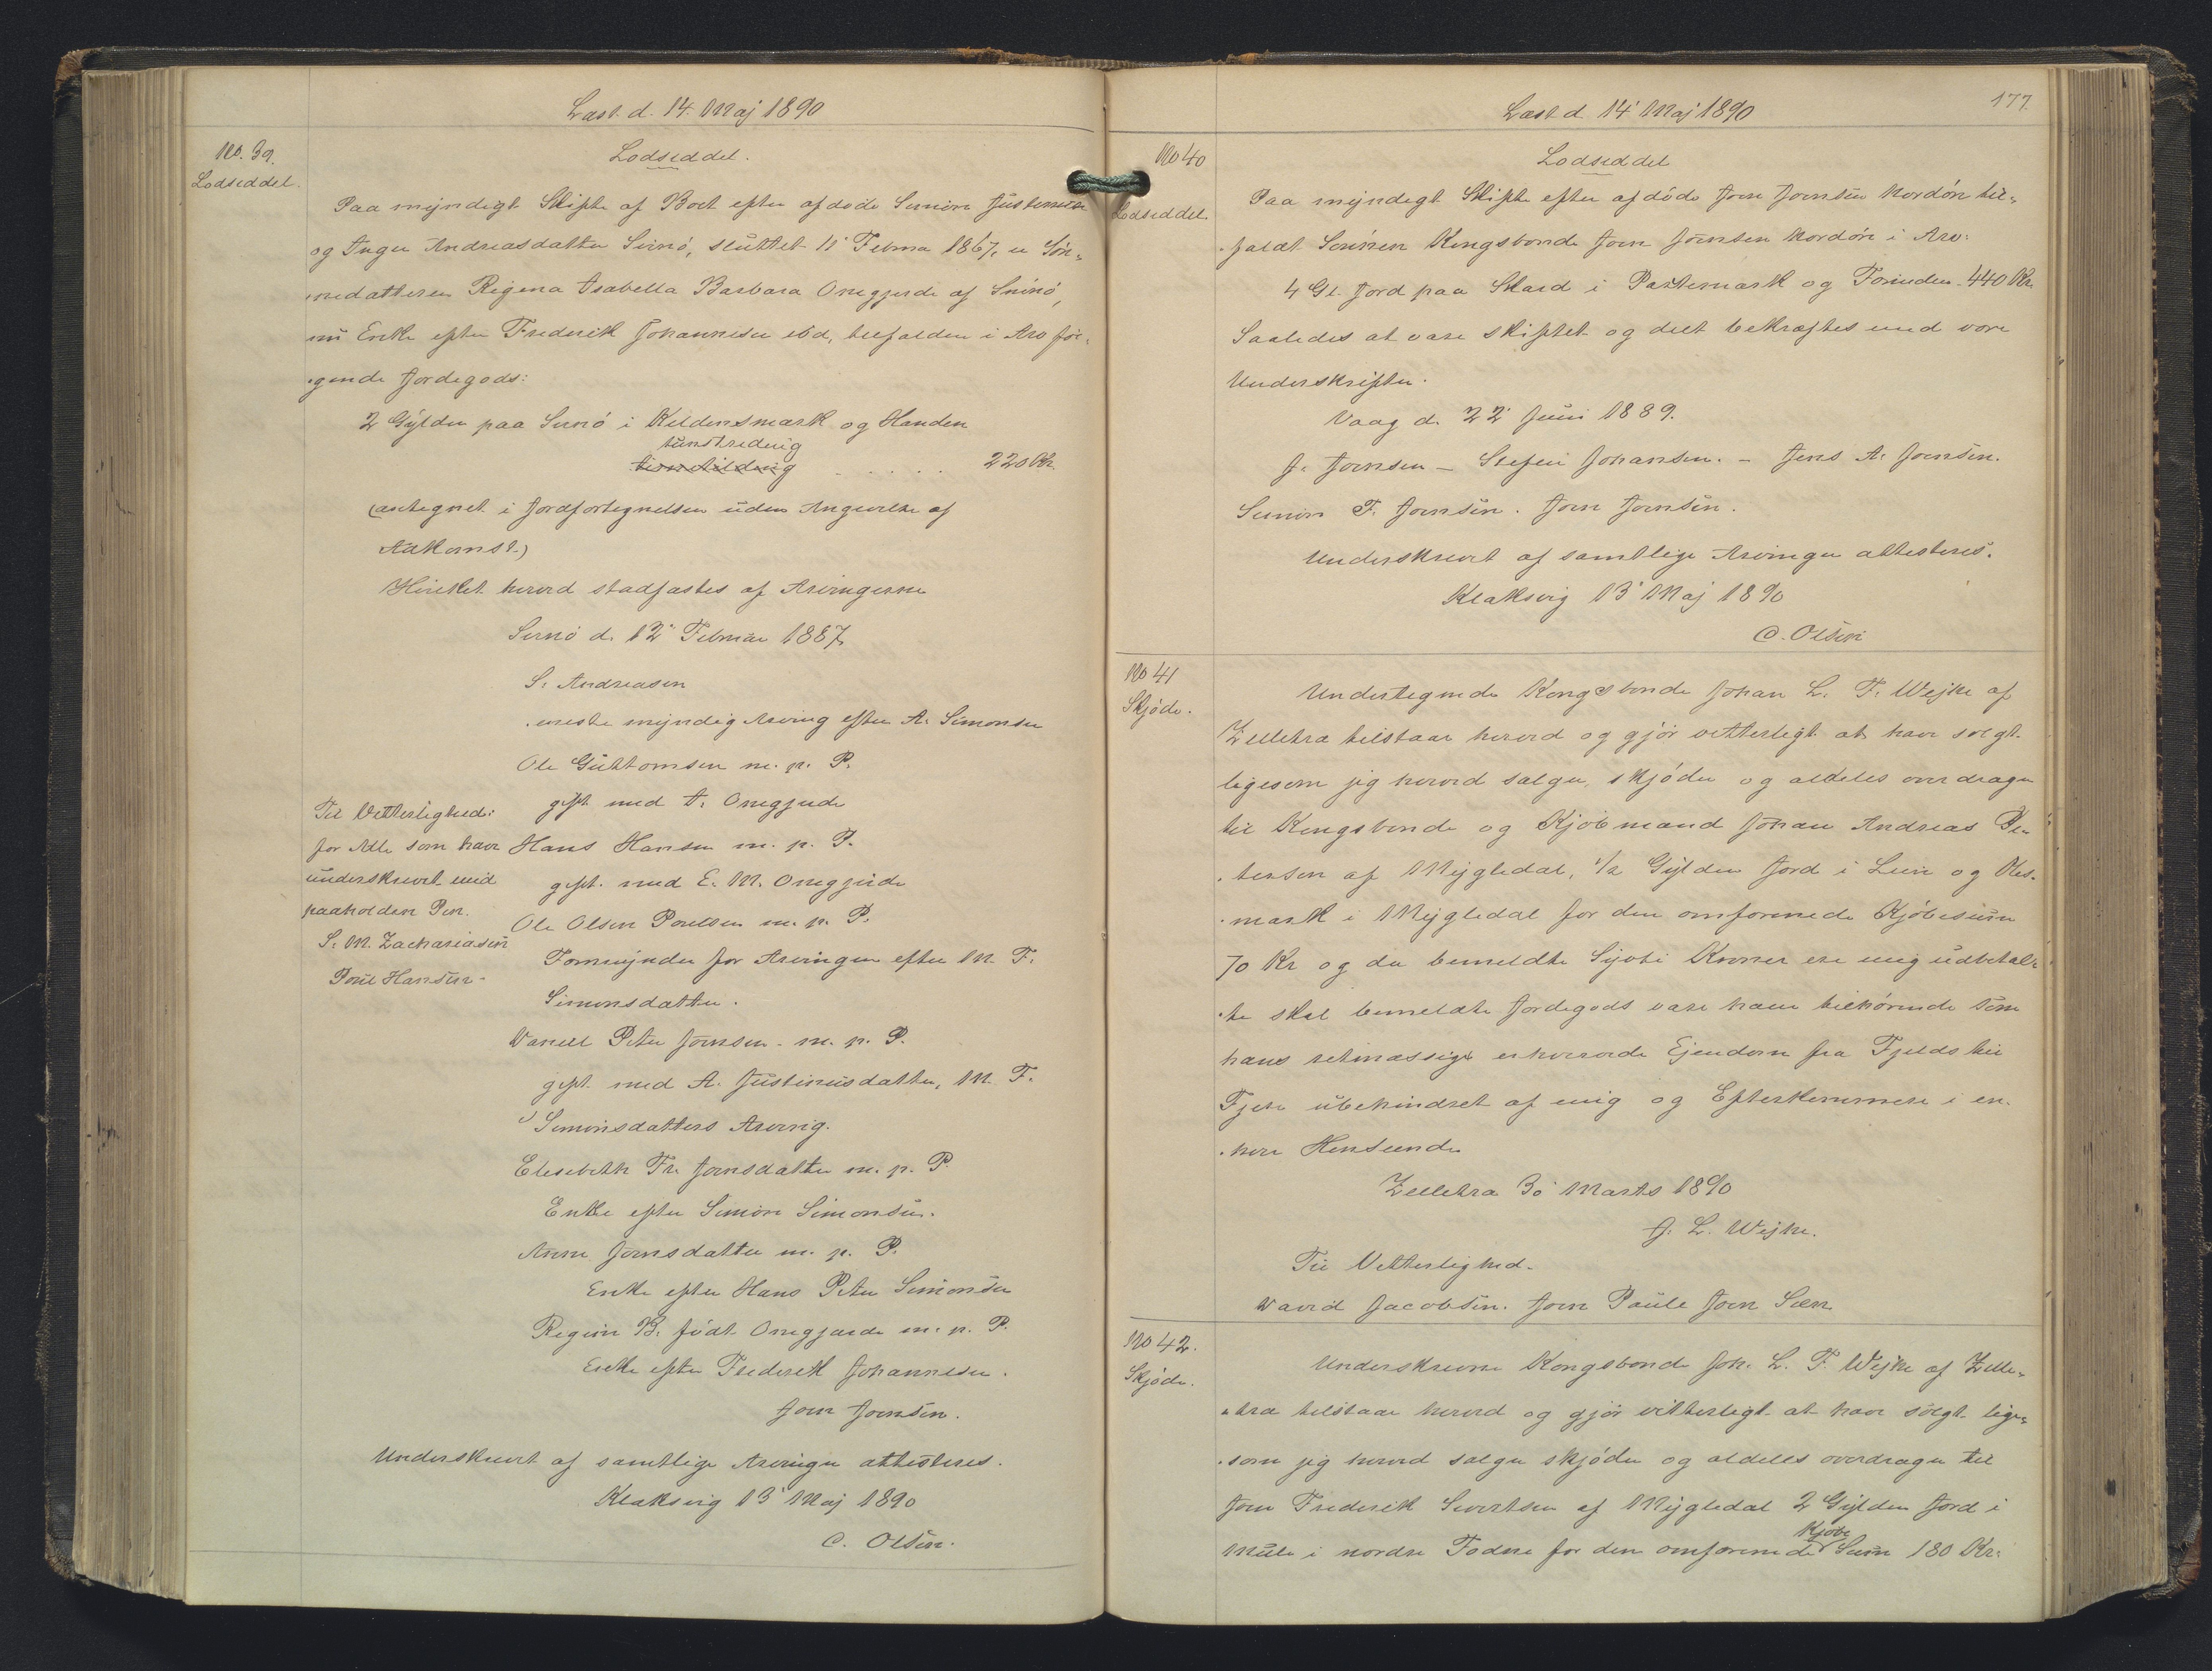 Læst d. 14 Maj 1890
No. 39.
Lodseddel.
Lodseddel.
Paa myndigt Skifte af Boet efter afdøde Simon Justinusen
og Inger Andreasdatter Svinö, sluttet 11' Februa 1867, er Sön-
nedatteren Regina Isabella Barbara Önegjerde af Svinö,
nu Enke efter Frederik Johannesen ibd, tilfalden i Arv föl-
gende Jordegods:
2 Gylden paa Svinö i Kildensmark og Handen
220 Kr.
(antegnet i Jordfortegnelsen uden Angivelse af
Adkomst.)
Hvilket herved stadfæstes af Arvingerne
Svinö d. 12' Februar 1887
S. Andreasen
eneste myndig Arving efter A. Simonsen
Ole Guttomsen m. p. P.
gift med I. Önegjerde
Hans Hansen m. p. P.
gift med E. M. Önegjerde
Ole Olsen Poulsen m. p. P.
Formynder for Arvingen efter M F.
Simonsdatter.
Daniel Peter Joensen m. p. P.
gift med A. Justinusdatter, M F.
Simonsdatters Arving.
Elesebeth Fr. Joensdatter m. p. P.
Enke efter Simon Simonsen.
Anne Joensdatter m. p. P.
Enke efter Hans Peter Simonsen
Regine B. födt Önegjærde m. p. P.
Enke efter Frederik Johannesen.
Joen Joensen.
Til Vitterlighed:
for Alle som have
underskrevet med
paaholden Pen.
S. M. Zachariasen
Poul Hansen
Underskrevet af samtlige Arvinger attesteres.
Klaksvig 13' Maj 1890
C. Olsen.
177.
Læst d 14' Maj 1890
No 40
Lodseddel.
Lodseddel
Paa myndigt Skifte efter afdöde Joen Joensen Nordön til-
faldt Sönnen Kongsbonde Joen Joensen Nordön i Arv:
4 Gl. Jord paa Skard i Partemark og 440 Kr.
Saaledes at være skiftet og delt bekræftes med vore
Underskrifter.
Vaag d. 22' Juni 1889.
J. Joensen — Steffen Johansen. — Jens A. Joensen.
Simon F. Joensen. Joen Joensen.
Underskrevet af samtlige Arvinger attesteres.
Klaksvig 13' Maj 1890
C. Olsen
No 41
Skjöde.
Undertegnede Kongsbonde Johan L. F. Wejhe af
Zelletra tilstaar herved og gjör vitterligt at have solgt
ligesom jeg herved sælger, skjöder og aldeles overdrager
til Kongsbonde og Kjöbmand Johan Andreas Pe-
tersen af Mygledal, 1/2 Gylden Jord i Leire og Nes-
mark i Mygledal for den omforenede Kjöbesum
70 Kr og da bemeldte Syvti Kroner ere mig udbetal-
te skal bemeldte Jordegods være ham tilhörende som
hans retmæssige erhvervede Ejendom fra Fjelds til
Fjære ubehindret af mig og Efterkommere i en-
hver Henseende
Zelletra 30 Marts 1890
J. L. Wejhe.
Til Vitterlighed.
David Jacobsen. Joen Paule Joen Sen
No 42.
Skjöde.
Underskrevne Kongsbonde Joh. L. F. Wejhe af Zelle-
tra tilstaar herved og gjör vitterligt at have solgt lige-
som jeg herved sælger skjöder og aldeles overdrager til
Joen Frederik Sivertsen af Mygledal 2 Gylden Jord i
Mule i nordre Todne for den omforenede Kjöbe Sum 180 Kr.